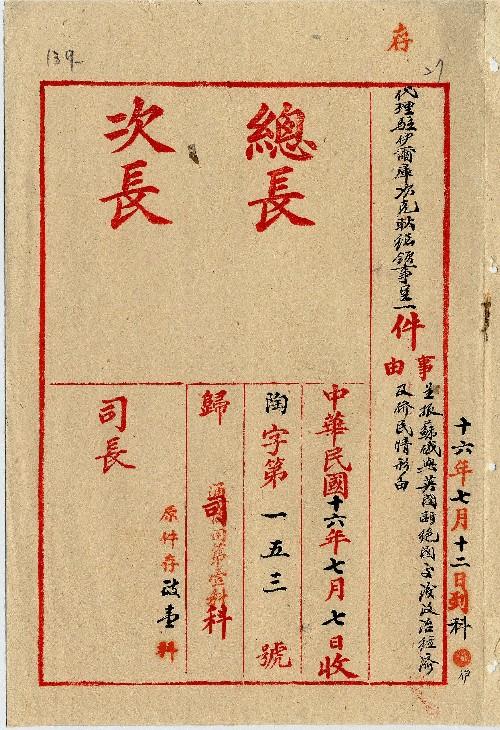 存
139
27
十六年七月十二日到科
伊
代理駐伊爾庫次克總領事呈一件
事由
呈報蘇俄與英國斷絕國交後政治經濟
及僑民情形由
總長
次長
中華民國十六年七月七日收
陶字第一五三號
歸 司 科
原件存政壹科
司長